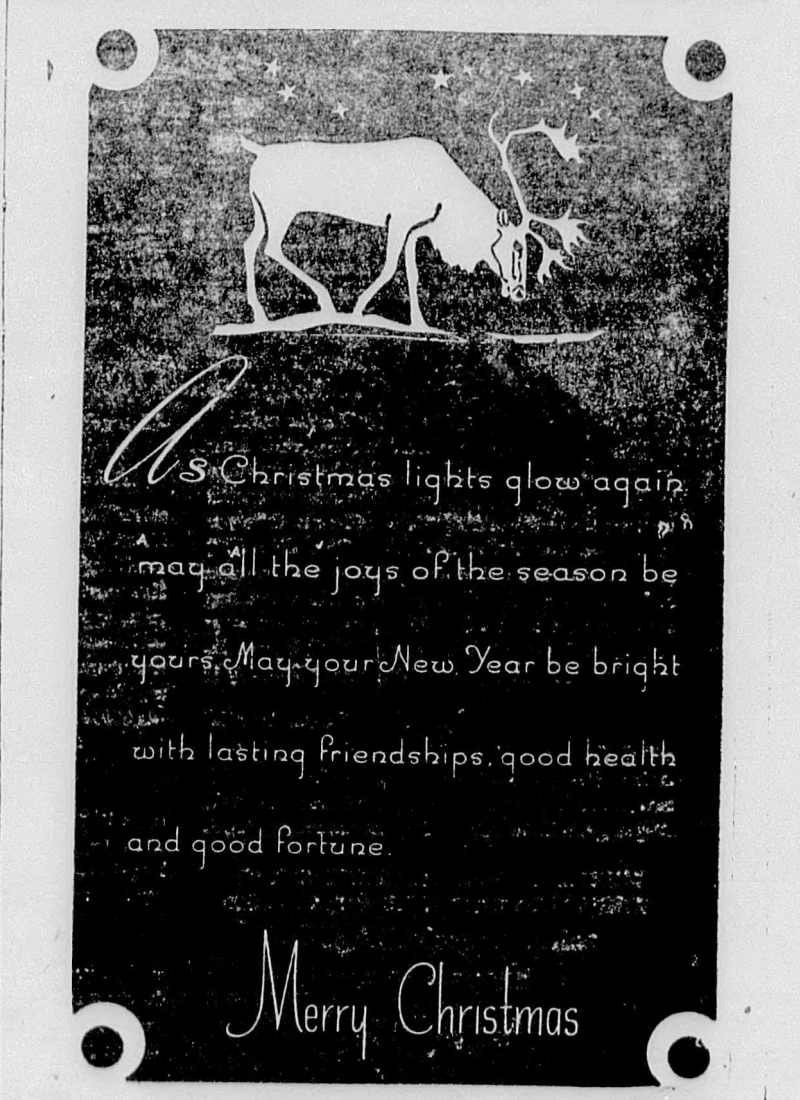 As Christmas lights glow again
may all the joys of the season be
yours. May your New Year be bright
with lasting friendships, good health
and good fortune.
Merry Christmas